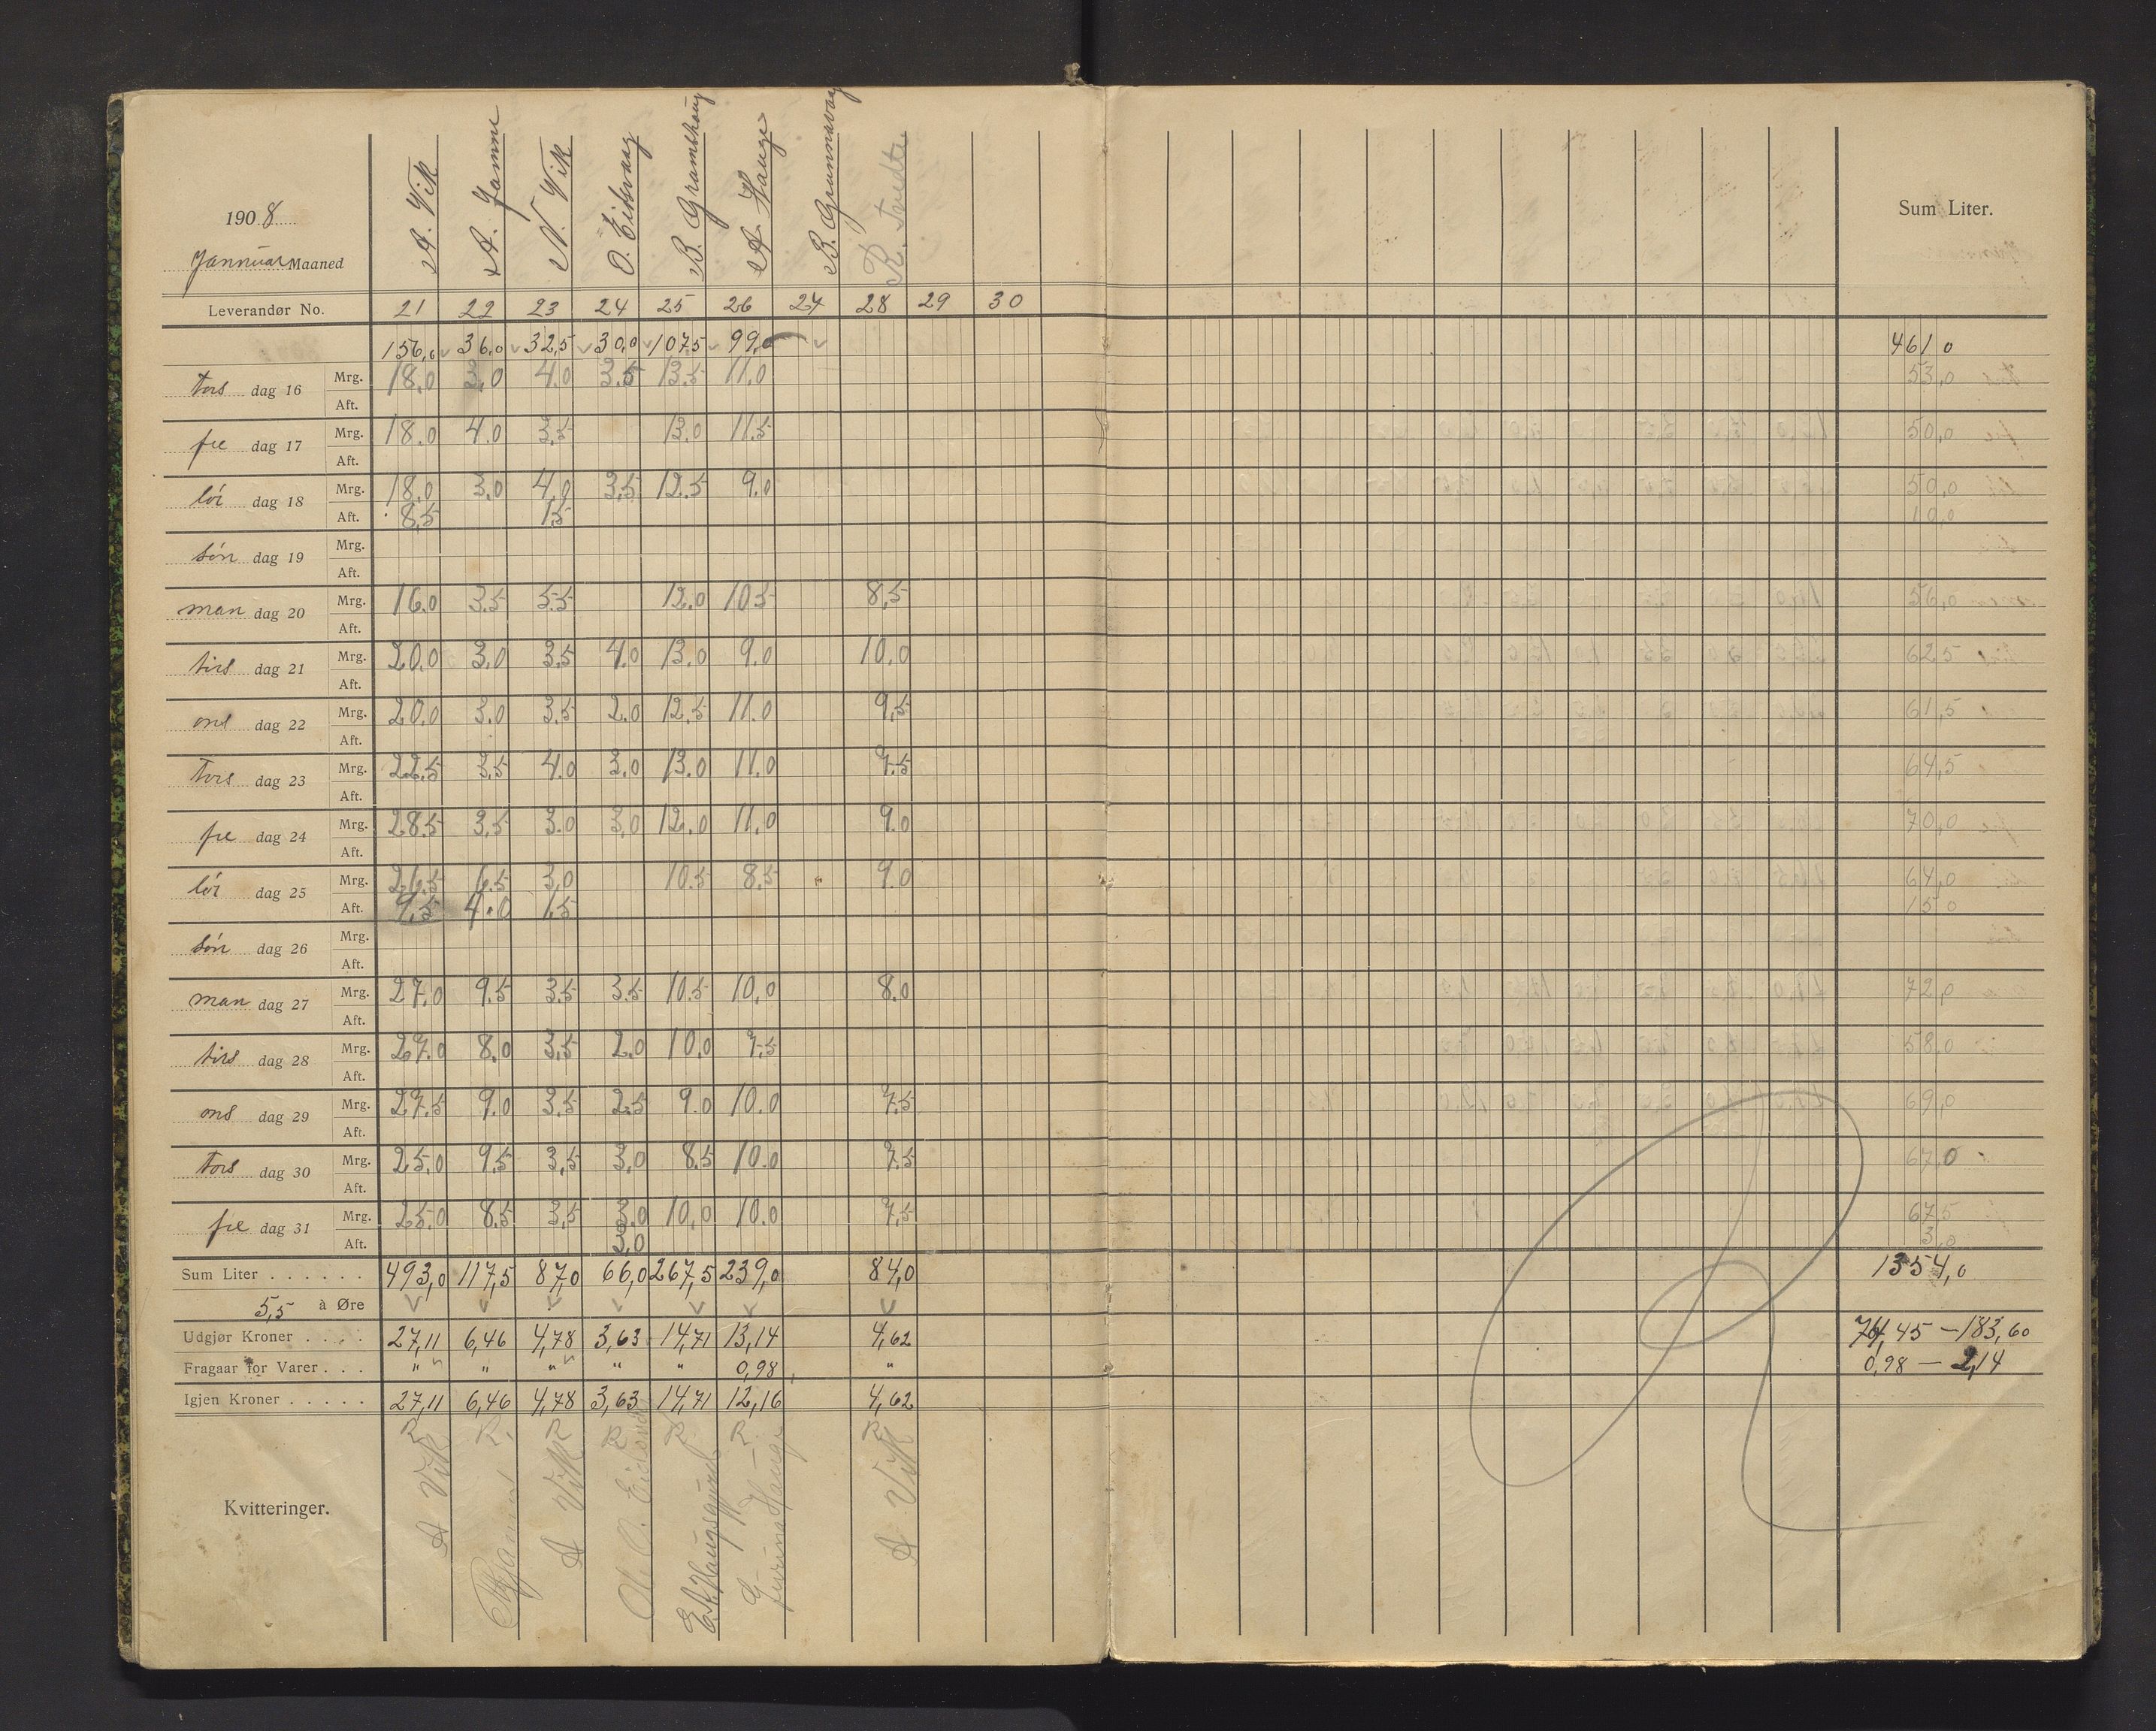 1908
Januar Maaned
A. Vik
A. Jamne
N. Vik
O. Eidsvaag
B. Gramshaug
A. Hauge
B. Grønnevaag
R. Tvedte
Sum Liter.
Leverandør No. 21 22 23 24 25 26 27 28 29 30
156,0 36,0 32,5 30,0 107,5 99,0 461 0
Tors dag 16 Mrg. 18,0 3,0 4.0 3.5 13.5 11.0 53,0
Aft.
fre dag 17 Mrg. 18.0 4.0 3,5 13.0 11.5 50,0
Aft.
lör dag 18 Mrg. 18.0 3.0 4.0 3,5 12.5 9.0 50,0
Aft. 8,5 1,5 10,0
sön dag 19 Mrg.
Aft.
man dag 20 Mrg. 16.0 3.5 5.5 12.0 10.5 8,5 56,0
Aft.
tirs dag 21 Mrg. 20.0 3.0 3,5 4.0 13.0 9.0 10.0 62 5
Aft.
ons dag 22 Mrg. 20.0 3.0 3,5 2.0 12,5 11.0 9,5 61,5
Aft.
Tors dag 23 Mrg. 22.5 3,5 4.0 3.0 13.0 11.0 7.5 64,5
Aft.
fre dag 24 Mrg. 28.5 3,5 3.0 3,0 12.0 11.0 9.0 70,0
Aft.
lör dag 25 Mrg. 26,5 6.5 3,0 10.5 8,5 9.0 64,0
Aft. 9,5 4.0 1,5 15 0
sön dag 26 Mrg.
Aft.
man dag 27 Mrg. 27.0 9.5 3,5 3.5 10.5 10.0 8.0 72,0
Aft.
tirs dag 28 Mrg. 27.0 8.0 3,5 2.0 10.0 7,5 58,0
Aft.
ons dag 29 Mrg. 27.5 9.0 3,5 2.5 9.0 10.0 7.5 69,0
Aft.
Tors dag 30 Mrg. 25.0 9.5 3,5 3,0 8.5 10.0 7.5 67,0
Aft.
fre dag 31 Mrg. 25.0 8.5 3,5 3.0 10,0 10.0 7.5 67 5
Aft. 3,0 3,0
Sum Liter . . . . . . 493,0 117,5 87,0 66,0 267,5 239,0 84,0 1354,0
5,5 à Øre
Udgjør Kroner . . . . 27,11 6,46 4,78 3,63 14,71 13,14 4,62 74,45 — 183,60
Fragaar for Varer . . . " " " " " 0,98 " 0,98 — 2,14
Igjen Kroner . . . . . 27,11 6,46 4,78 3,63 14,71 12,16 4,62
Kvitteringer.
R R. R R R R. R
A Vik
A Vik
E. A. Haugsgjerd
A Vik